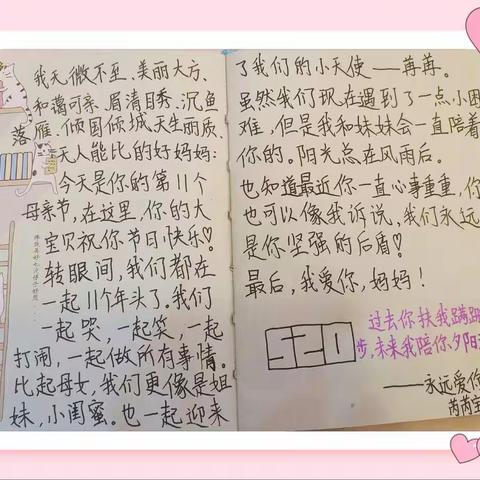 我无微不至、美丽大方、
和蔼可亲、眉清目秀、沉鱼
落雁、倾国倾城、天生丽质、
无人能比的好妈妈:
今天是你的第11个
母亲节,在这里,你的大
宝贝祝你节日快乐!
转眼间,我们都在
一起11个年头了。我们
一起哭,一起笑,一起
打闹,一起做所有事情。
比起母女,我们更像是姐
妹,小闺蜜。也一起迎来
了我们的小天使——苒苒。
虽然我们现在遇到了一点小困
难,但是我和妹妹会一直陪着
你的。阳光总在风雨后。
也知道最近你一直心事重重,你
也可以像我诉说,我们永远
是你坚强的后盾!
最后,我爱你,妈妈!
520
过去你扶我蹒跚
步,未来我陪你夕阳
——永远爱你
芮芮宝